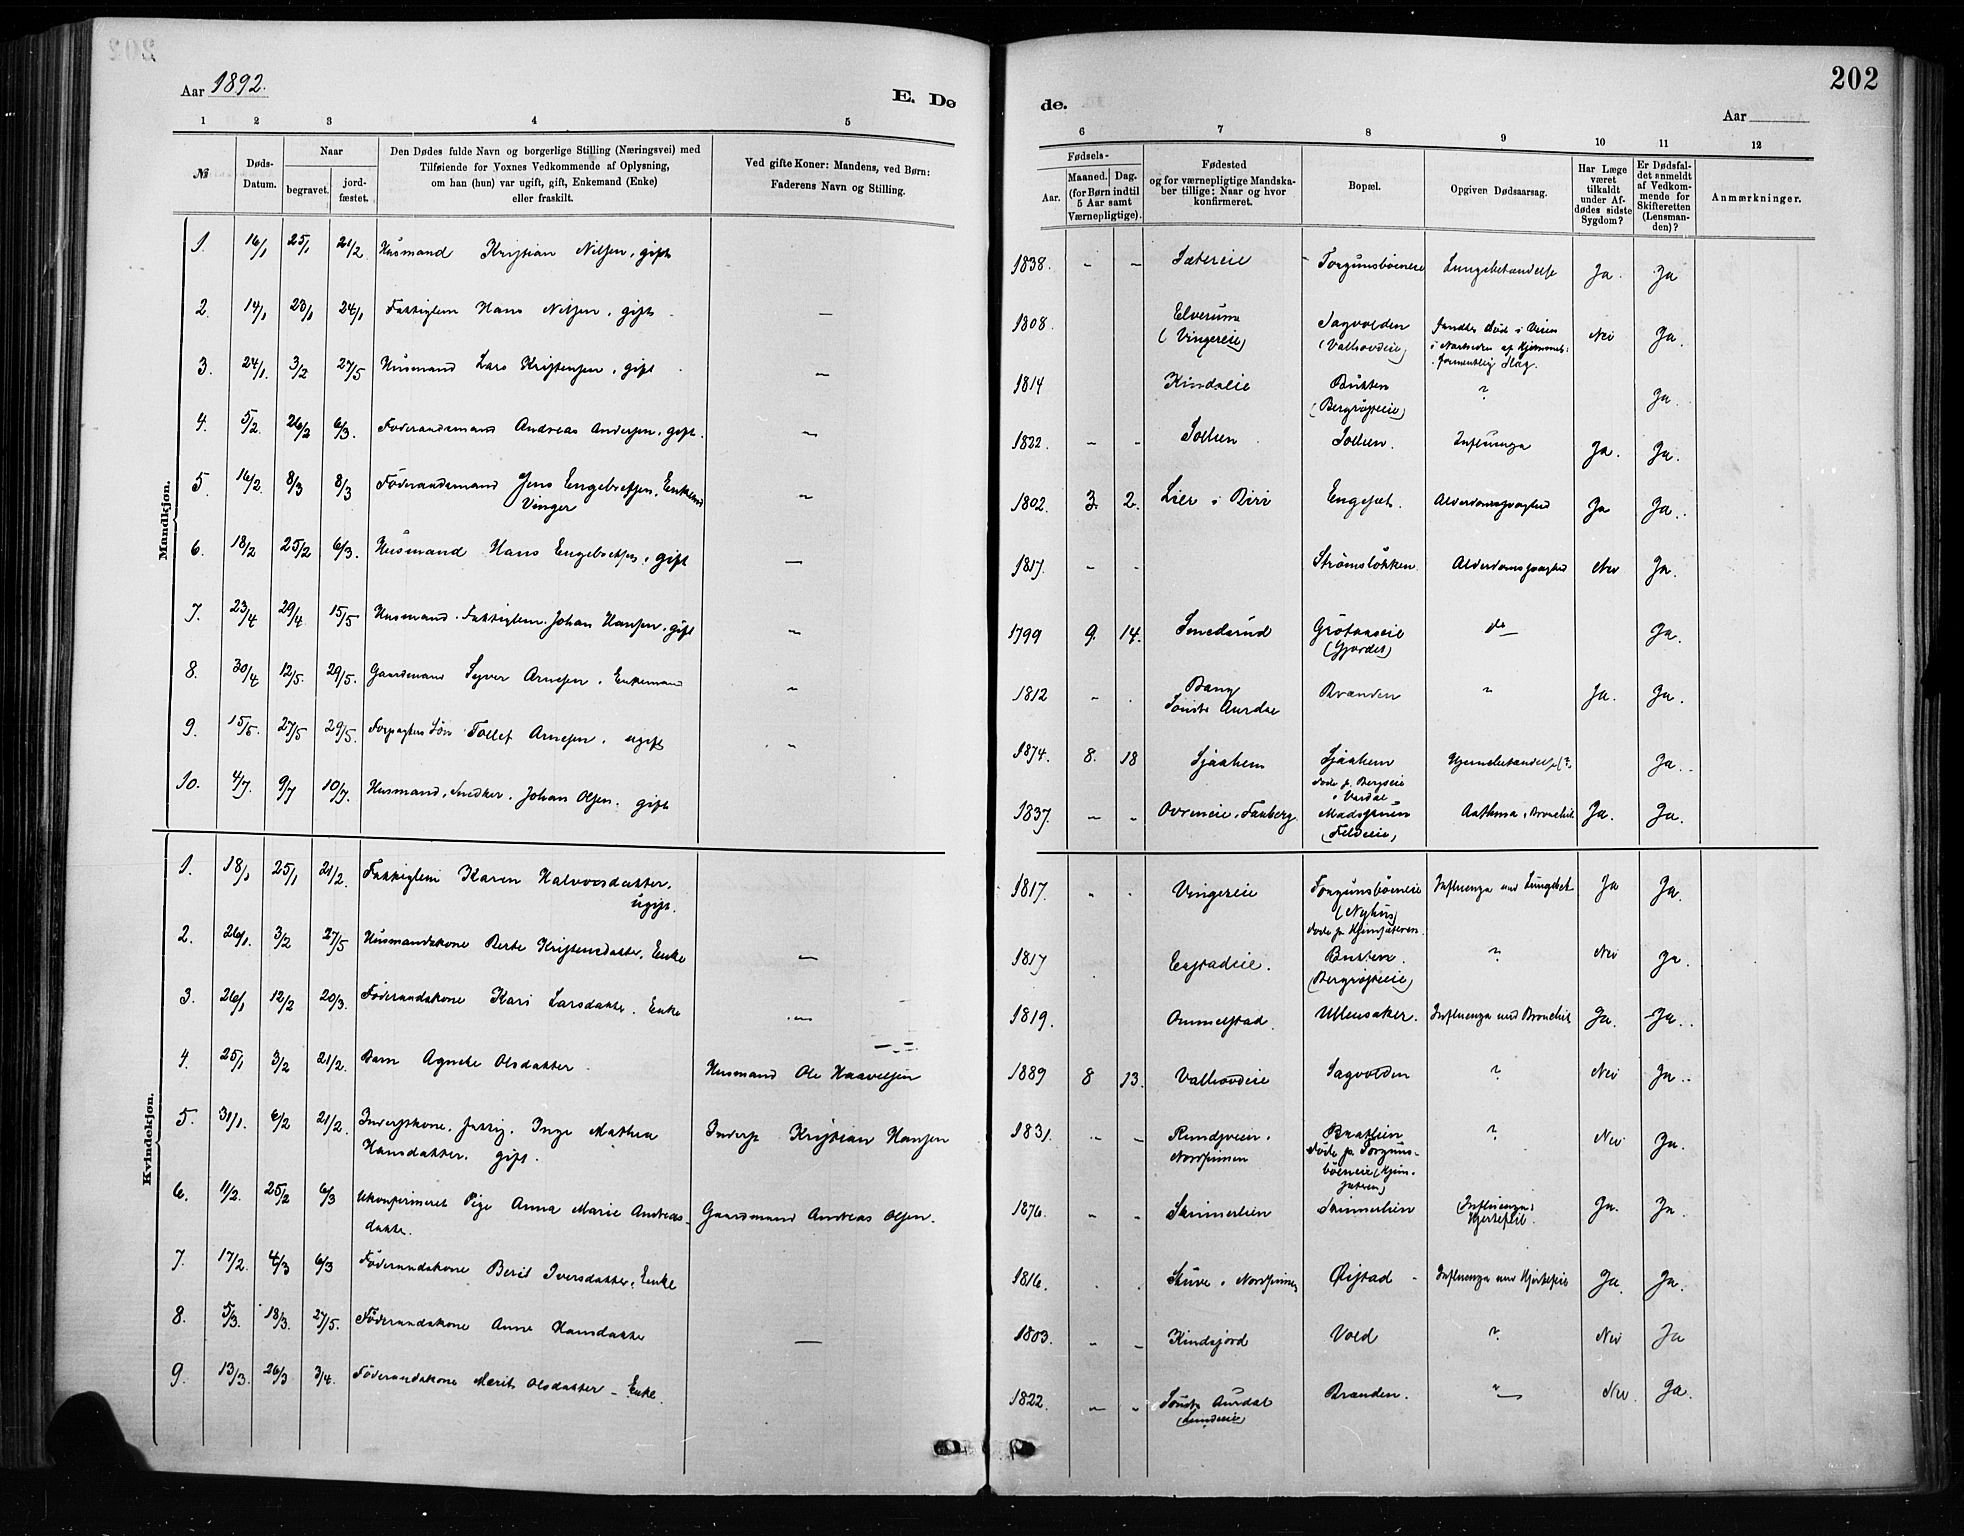 202
Aar 1892.
E. Døde.
Aar
1 2 3 4 5 6 7 8 9 10 11 12
№
Døds-Datum.
Naar
begravet.
jord-fæstet.
Den Dødes fulde Navn og borgerlige Stilling (Næringsvei) med
Tilføiende for Voxnes Vedkommende af Oplysning,
om han (hun) var ugift, gift, Enkemand (Enke)
eller fraskilt.
Ved gifte Koner: Mandens, ved Børn:
Faderens Navn og Stilling.
Fødsels-
Aar.
Maaned. Dag.
(for Børn indtil
5 Aar samt
Værnepligtige).
Fødested
og for værnepligtige Mandska-
ber tillige: Naar og hvor
konfirmeret.
Bopæl.
Opgiven Dødsaarsag.
Har Læge
været
tilkaldt
under Af-
dødes sidste
Sygdom?
Er Dødsfal-
det anmeldt
af Vedkom-
mende for
Skifteretten
(Lensman-
den)?
Anmærkninger.
Mandkjøn.
1. 16/1 25/1 21/2 Husmand Kristian Nilsen, gift 1838. - - Sætereie Torgunsbøeneie Lungebetændelse Ja. Ja
2. 14/1 23/1 24/1 Fattiglem Hans Nilsen, gift - 1808. Elverum (Vingereie) Sagvolden (Valhovdeie) fandtes død i Veien i Nærheden af Hjemmet; formentlig Slag. Nei Ja.
3. 24/1. 3/2 27/5 Husmand Lars Kristensen, gift - 1814 Kindseie Bakken (Bergsrøseie) ? Ja.
4. 5/2. 26/2 6/3. Føderaadsmand Andreas Andersen, gift. - 1822. - - Solhen Solhen. Influenza Ja. Ja.
5. 16/2. 8/3 8/3 Føderaadsmand Jens Engebretsen, Enkemand - 1802. 3. 2. Lier i Biri Engesæt. Alderdomssvaghed Ja Ja.
Vinger
6. 18/2 25/2 6/3. Husmand Hans Engebretsen, gift - 1817. - - Strømsløkken Alderdomssvaghed Nei Ja.
7. 23/4 29/4 15/5 Husmand. Fattiglem. Johan Hansen, gift - 1799 9. 14. Smedsrud Grøtaaseie (Gjærdet) do Ja.
8. 30/4 12/5. 29/5. Gaardmand Syver Arnesen, Enkemand - 1812 - . Bang Søndre Aurdal Branden " Ja. Ja.
9. 15/5. 27/5 29/5. Forpagters Søn Tollef Arnesen, ugift - 1874. 8. 18 Sjaahem Sjaahem døde p. Bergseie i Vardal Hjernebetændelse(?) Ja.
10. 4/7. 9/7 10/7. Husmand, Snedker. Johan Olsen, gift 1837. - - Ovreneie, Faaberg Madsstuen (Feldeie) Asthma, Bronchit Ja. Ja.
Kvindekjøn.
1. 18/1 25/1 21/2. Fattiglem Karen Halvorsdatter, ugift. 1817. - . Vingereie Torgunsbøeneie (Nyhus) døde p. Hjemsæteren Influenza med Lungebet. Ja Ja.
2. 26/1. 3/2 27/5 Husmandskone Berte Kristensdatter, Enke - 1817 Engstadeie. Bakken. (Bergsrøseie) ? Nei Ja.
3. 26/1 12/2 20/3. Føderaadskone Kari Larsdatter, Enke - 1819. Ommelstad. Ullensaker. Influenza med Bronchit Ja. Ja.
4. 25/1 3/2 21/2. Barn Agnete Olsdatter Husmand Ole Haavelsen 1889 8 13. Valhovdeie Sagvolden ? Nei Ja.
5. 31/1. 6/2 21/2. Inderstkone, fattig. Inge Mathea Hansdatter, gift. Inderst Kristian Hansen 1831. - - Rundsveien. Nordsinnen Braathen døde p. Torgunsbøeneie (Hjemsæteren) ? Nei Ja.
6. 11/2. 25/2 6/3 Ukonfirmeret Pige Anna Marie Andreasdatter. Gaardmand Andreas Olsen. 1876. - - Skinnerlien Skinnerlien (Influenza) Hjertefeil. Ja. Ja.
7. 17/2. 4/3 6/3 Føderaadskone Berit Iversdatter, Enke 1816. . . Stuve i Nordsinnen Øistad - Influenza med Hjertefeil Ja. Ja.
8. 5/3. 18/3. 27/5. Føderaadskone Anne Hansdatter - 1803. - - Kindsjord Vold ? Nei Ja
9. 13/3. 26/3 3/4. Føderaadskone Marit Olsdatter - Enke. 1822. - - Søndre Aurdal (Lundeie) Branden. " Nei. Ja.